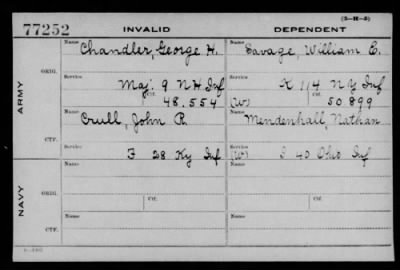 (3-H-3)
77252 INVALID DEPENDENT
ARMY
ORIG.
Name Chandler, George H. Name Savage, William E.
Service Maj. 9 N H Inf Service K 114 N Y Inf
Ctf. 48.554 (W) Ctf. 50.899
CTF.
Name Crull, John R. Name Mendenhall, Nathan
Service F 28 Ky Inf Service (W) I 40 Ohio Inf
NAVY
ORIG.
Name Name
Service Ctf. Service Ctf.
CTF.
Name Name
Service Service